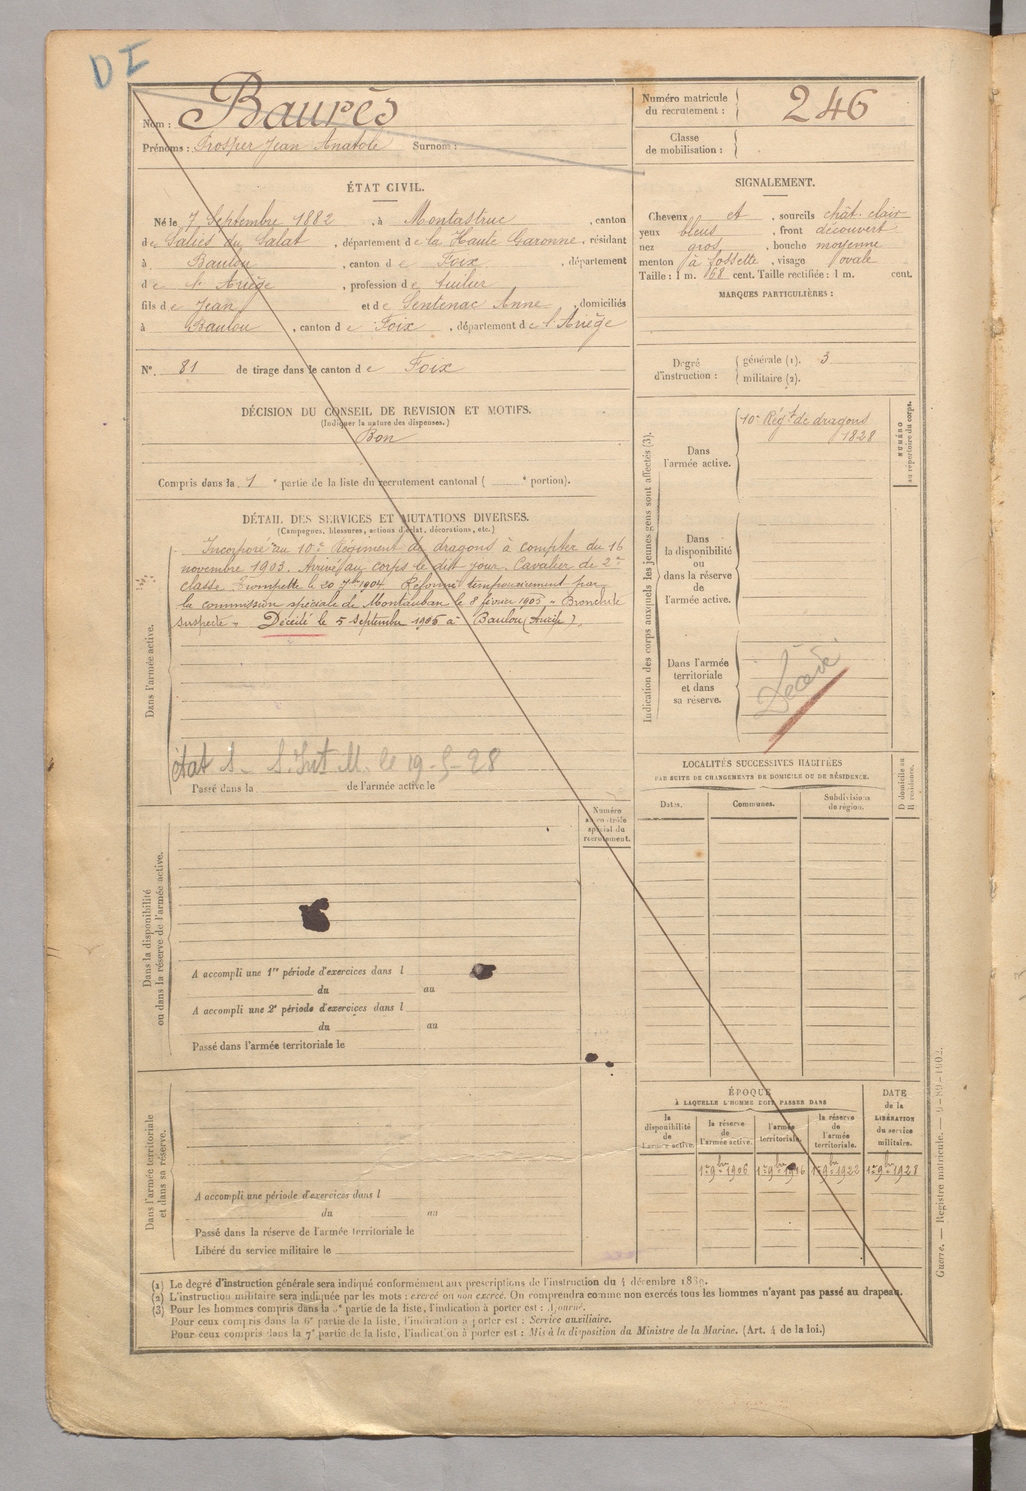 DI
Nom : Baurès
Prénoms : Prosper Jean Anatole Surnom :
Numéro matricule du recrutement : 246
Classe de mobilisation :
ÉTAT CIVIL.
Né le 7 Septembre 1882, à Montastruc, canton
de Salies du Salat, département de la Haute Garonne, résidant
à Baulou, canton de Foix, département
de l'Ariège, profession de tuilier
fils de Jean et de Sentenac Anne, domiciliés
à Baulou, canton de Foix, département de l'Ariège
N° 81 de tirage dans le canton de Foix
DÉCISION DU CONSEIL DE REVISION ET MOTIFS.
(Indiquer la nature des dispenses.)
Bon
Compris dans la 1e partie de la liste du recrutement cantonal ( e portion).
DÉTAIL DES SERVICES ET MUTATIONS DIVERSES.
(Campagnes, blessures, actions d'éclat, décorations, etc.)
Dans l'armée active.
Incorporé au 10e Régiment de dragons à compter du 16
novembre 1903. Arrivé au corps le dit jour. Cavalier de 2e
classe Trompette le 20 7bre 1904. Réformé temporairement par
la commission spéciale de Montauban le 8 février 1905 - Bronchite
suspecte - Décédé le 5 Septembre 1905 à Baulou (Ariège).
état S. S. Int M. le 19-5-28
Passé dans la de l'armée active le
Dans la disponibilité
ou dans la réserve de l'armée active.
Numéro
au contrôle
spécial du
recrutement.
A accompli une 1re période d'exercices dans l
du au
A accompli une 2e période d'exercices dans l
du au
Passé dans l'armée territoriale le
Dans l'armée territoriale
et dans sa réserve.
A accompli une période d'exercices dans l
du au
Passé dans la réserve de l'armée territoriale le
Libéré du service militaire le
SIGNALEMENT.
Cheveux et, sourcils chât. clair
yeux bleus, front découvert
nez gros, bouche moyenne
menton à fossette, visage ovale
Taille : 1 m. 68 cent. Taille rectifiée : 1 m. cent.
MARQUES PARTICULIÈRES :
Degré d'instruction : générale (1). 3
militaire (2).
Indication des corps auxquels les jeunes gens sont affectés (3).
NUMÉRO
au répertoire du corps.
Dans
l'armée active.
10e Régt de dragons
1828
Dans
la disponibilité
ou
dans la réserve
de
l'armée active.
Dans l'armée
territoriale
et dans
sa réserve.
Décédé
LOCALITÉS SUCCESSIVES HABITÉES
PAR SUITE DE CHANGEMENTS DE DOMICILE OU DE RÉSIDENCE.
D domicile ou
R résidence.
Dates. Communes. Subdivisions de région.
ÉPOQUE
À LAQUELLE L'HOMME DOIT PASSER DANS
la disponibilité de l'armée active.
la réserve de l'armée active.
l'armée territoriale.
la réserve de l'armée territoriale.
DATE de la LIBÉRATION du service militaire.
1er 9bre 1906 1er 9bre 1916 1er 9bre 1922 1er 9bre 1928
(1) Le degré d'instruction générale sera indiqué conformément aux prescriptions de l'instruction du 4 décembre 1889.
(2) L'instruction militaire sera indiquée par les mots : exercé ou non exercé. On comprendra comme non exercés tous les hommes n'ayant pas passé au drapeau.
(3) Pour les hommes compris dans la 5e partie de la liste, l'indication à porter est : Ajourné.
Pour ceux compris dans la 6e partie de la liste, l'indication à porter est : Service auxiliaire.
Pour ceux compris dans la 7e partie de la liste, l'indication à porter est : Mis à la disposition du Ministre de la Marine. (Art. 4 de la loi.)
Guerre. — Registre matricule.